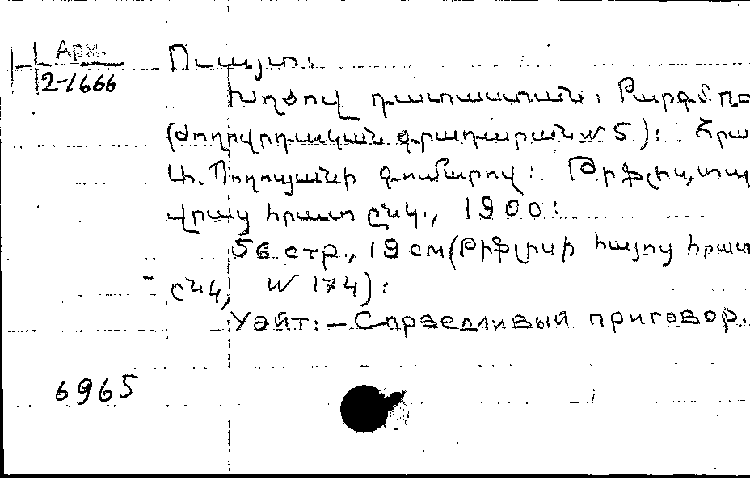 Арм.
2-1666
Ուայտ:
Խղճով դատաստան: Թարգմ.
(Ժողովրդական գրադարան № 5):
Մ. Պողոսյանի գումարով: Թիֆլիս, տպ
վրաց հրատ ընկ., 1900:
56 стр., 19 см (Թիֆլիսի հայոց հրատ
ընկ, № 174):
Уайт: – Справедливый приговор.
6965